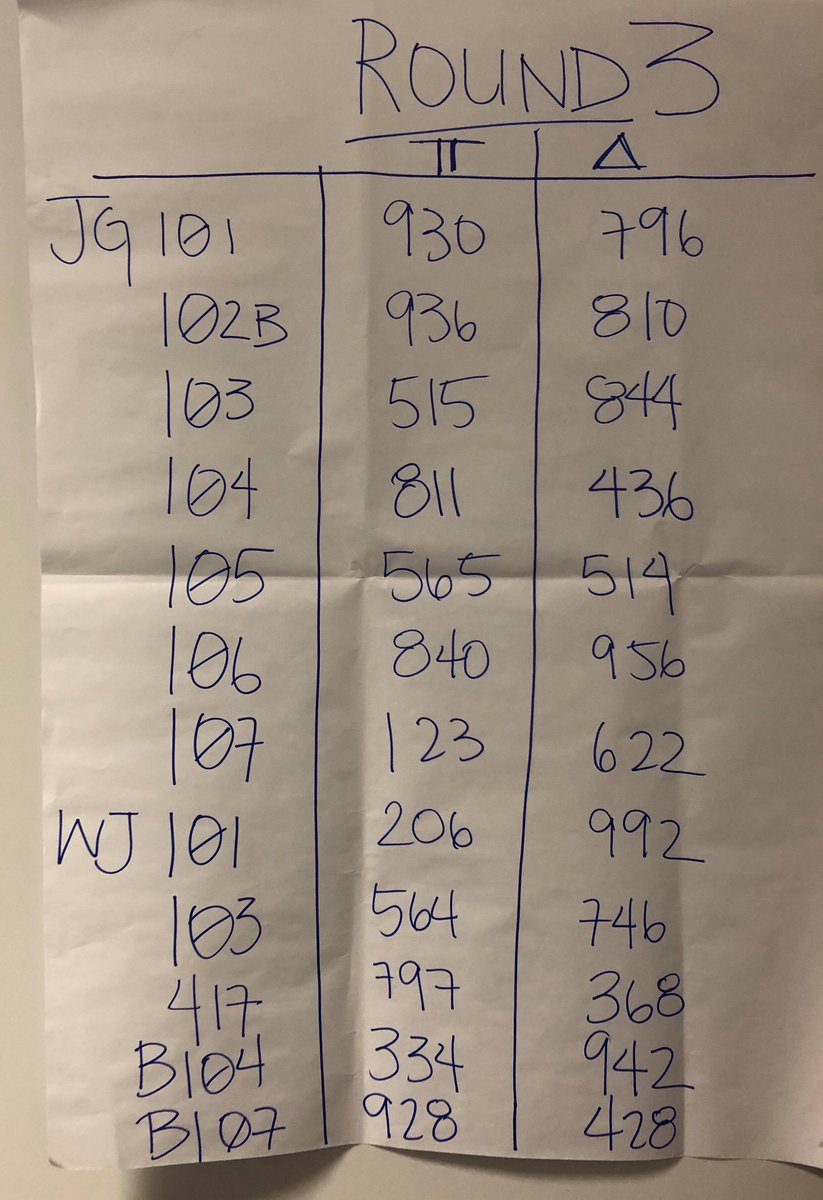 ROUND 3
π Δ
JG 101 930 796
102B 936 810
103 515 844
104 811 436
105 565 514
106 840 956
107 123 622
WJ 101 206 992
103 564 746
417 797 368
B104 334 942
B107 928 428